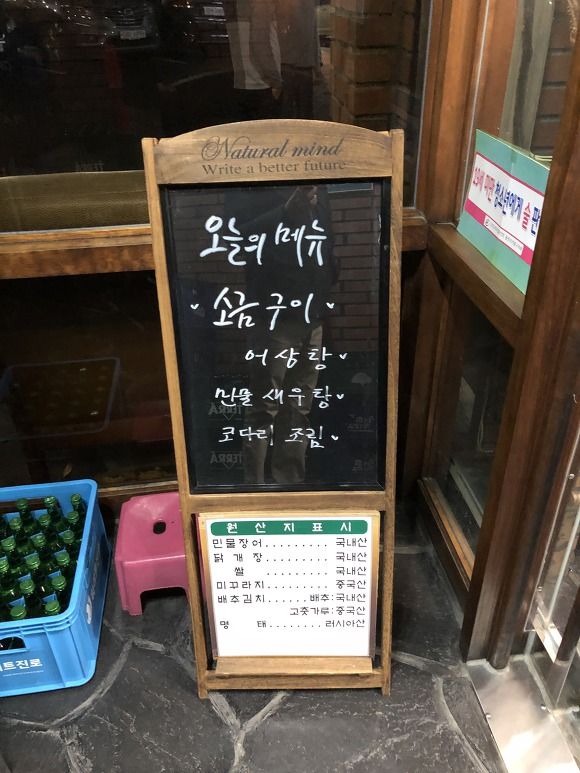 Natural mind
Write a better future
오늘의 메뉴
소금구이
어상탕
민물새우탕
코다리 조림
TERRA
TERRA
원산지표시
민물장어.........국내산
닭개장.........국내산
쌀.........국내산
미꾸라지.........중국산
배추김치......배추:국내산
고춧가루:중국산
명 태........러시아산
19세 미만 청소년에게 술 판
트진로